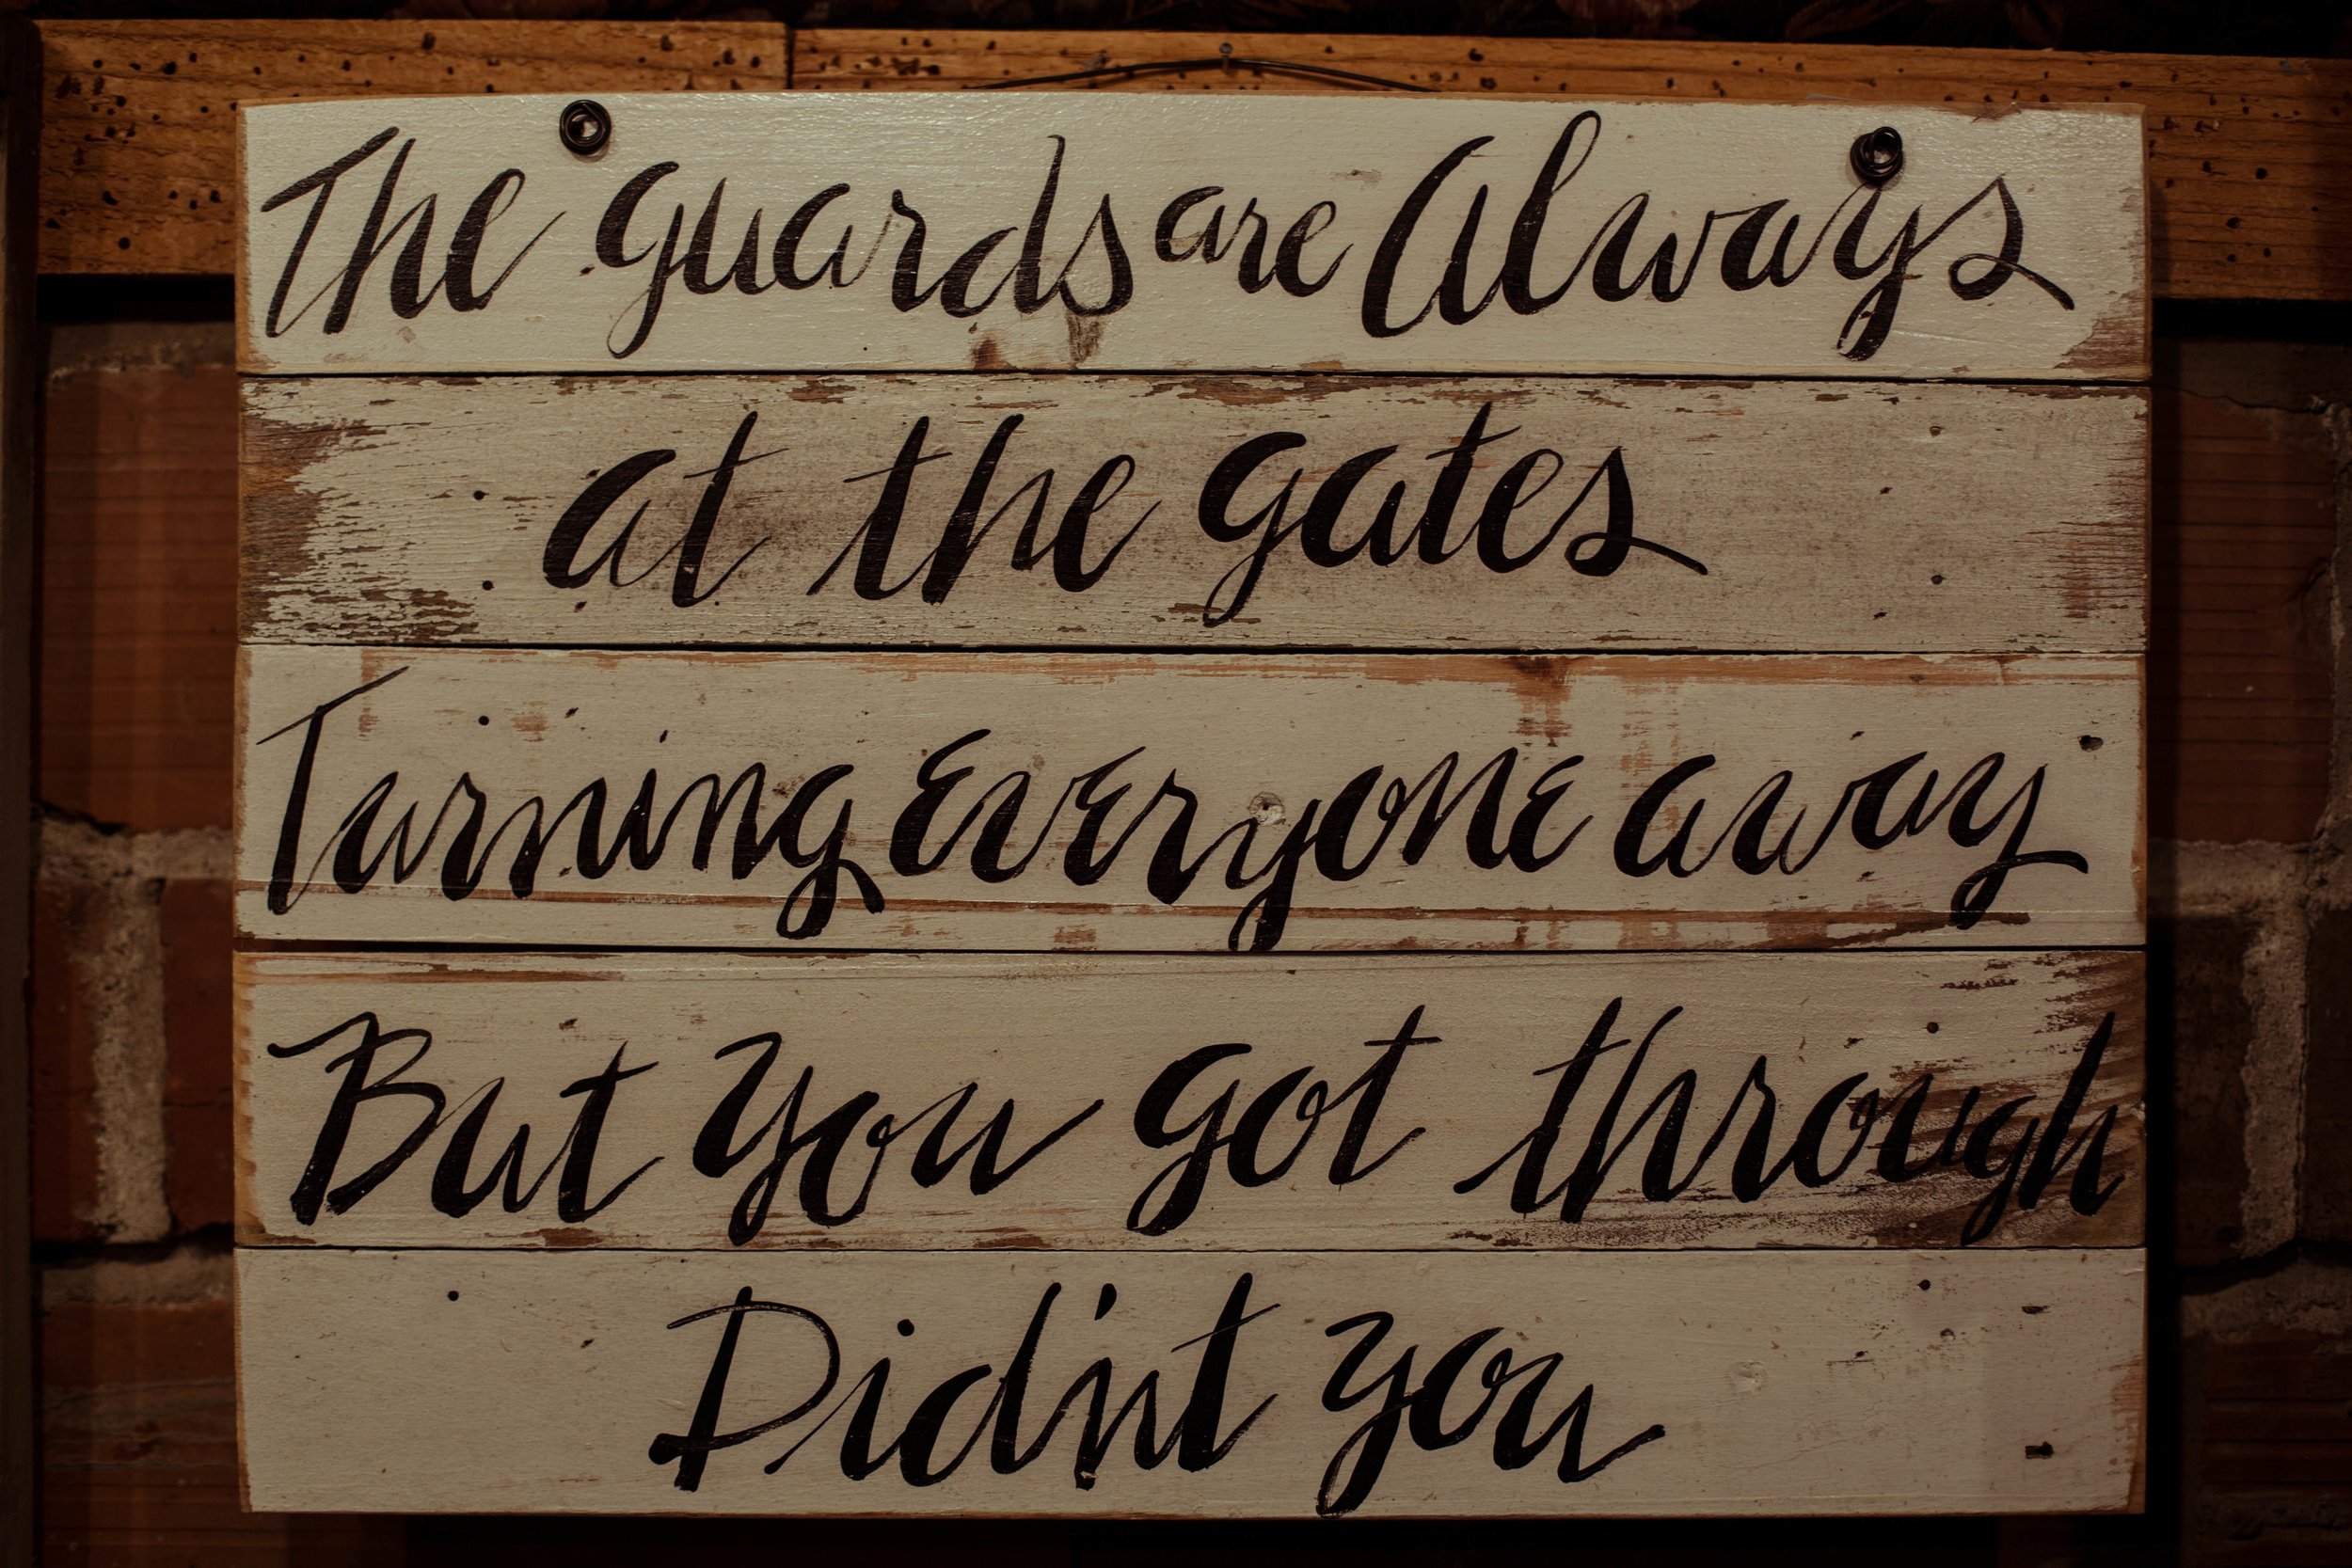 The guards are Always
at the gates
Turning Everyone away
But you got through
Didn't you